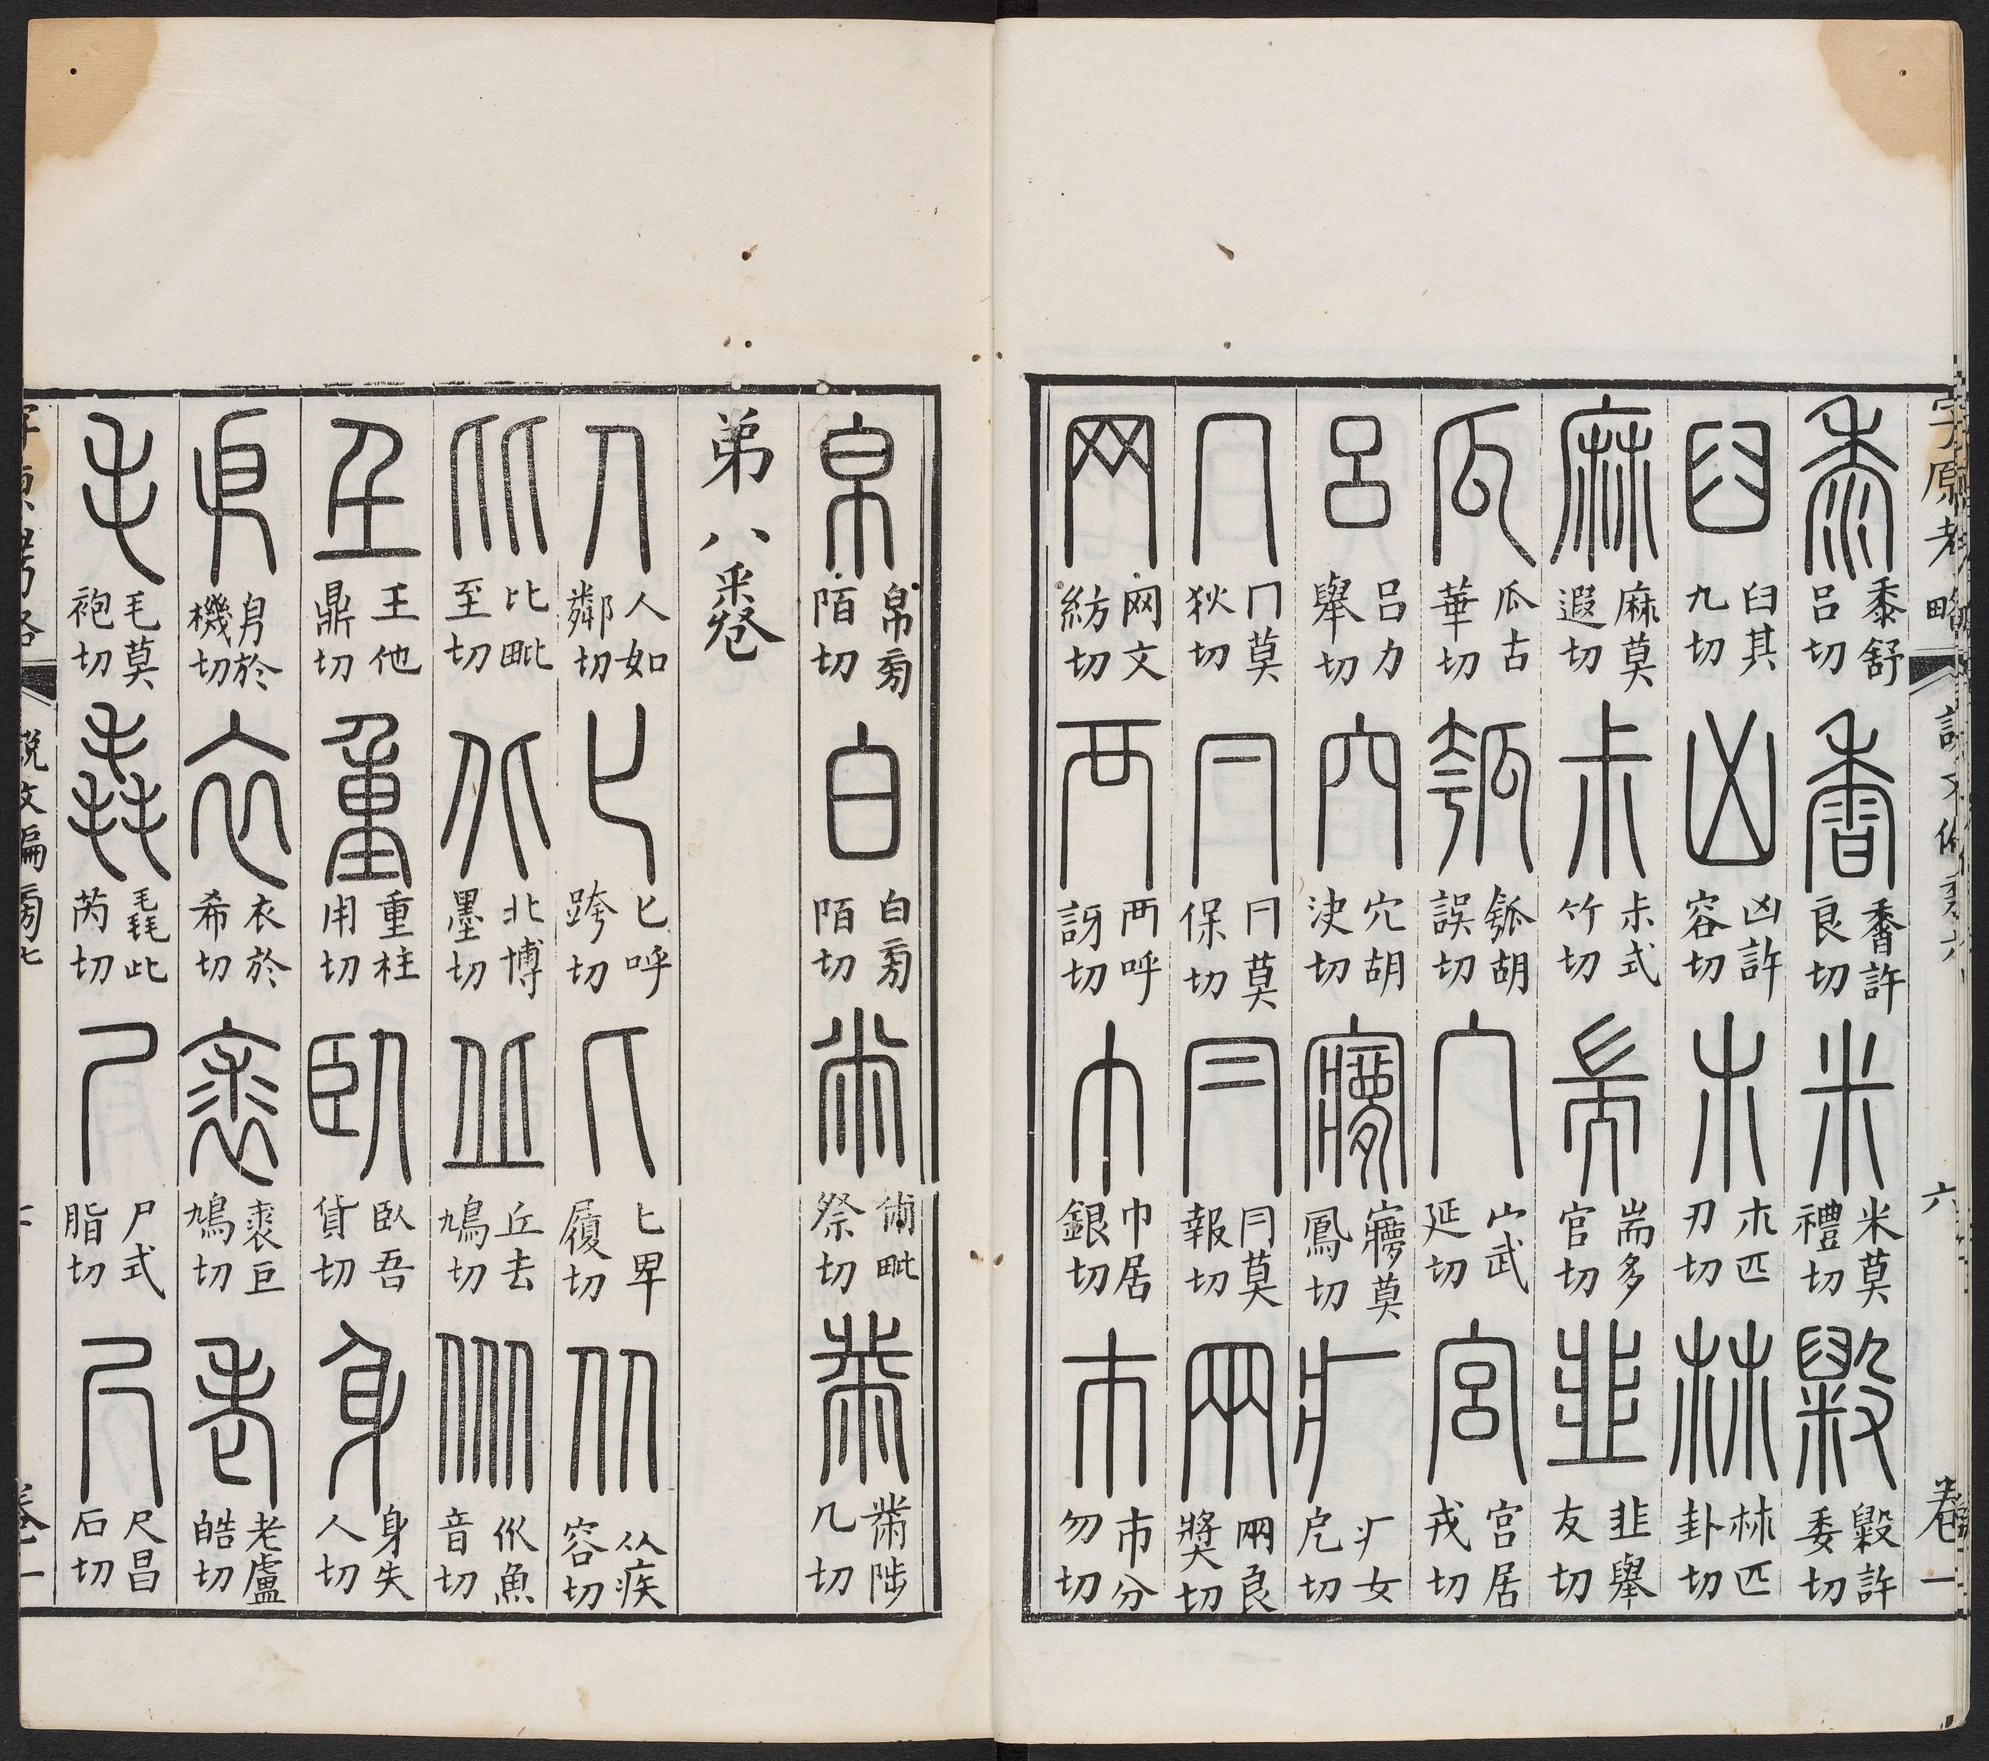 字原考略 說文偏旁六 六 卷一
黍 黍舒呂切 香 香許良切 米 米莫禮切 毇 毇許委切
臼 臼其九切 凶 凶許容切 朩 朩匹刃切 𣏟 𣏟匹卦切
麻 麻莫遐切 尗 尗式竹切 耑 耑多官切 韭 韭舉友切
瓜 瓜古華切 瓠 瓠胡誤切 宀 宀武延切 宮 宮居戎切
呂 呂力舉切 穴 穴胡決切 㝱 㝱莫鳳切 疒 疒女戹切
冂 冂莫狄切 冃 冃莫保切 冃 冃莫報切 㒳 㒳良獎切
网 网文紡切 襾 襾呼訝切 巾 巾居銀切 巿 巿分勿切
帛 帛㫄陌切 白 白㫄陌切 㡀 㡀毗祭切 黹 黹陟几切
弟八卷
人 人如鄰切 𠤎 𠤎呼跨切 匕 匕卑履切 从 从疾容切
比 比毗至切 北 北博墨切 丘 丘去鳩切 㐺 㐺魚音切
𡈼 𡈼他鼎切 重 重柱用切 臥 臥吾貨切 身 身失人切
㐆 㐆於機切 衣 衣於希切 裘 裘巨鳩切 老 老盧皓切
毛 毛莫袍切 毳 毳此芮切 尸 尸式脂切 尺 尺昌石切
字原考略 說文偏旁七 七 卷一